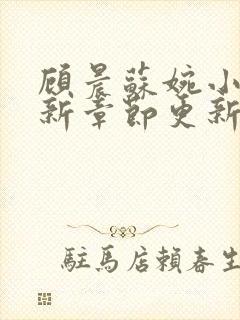 顾晨蘇婉小
新章節更新
駐馬店賴春生